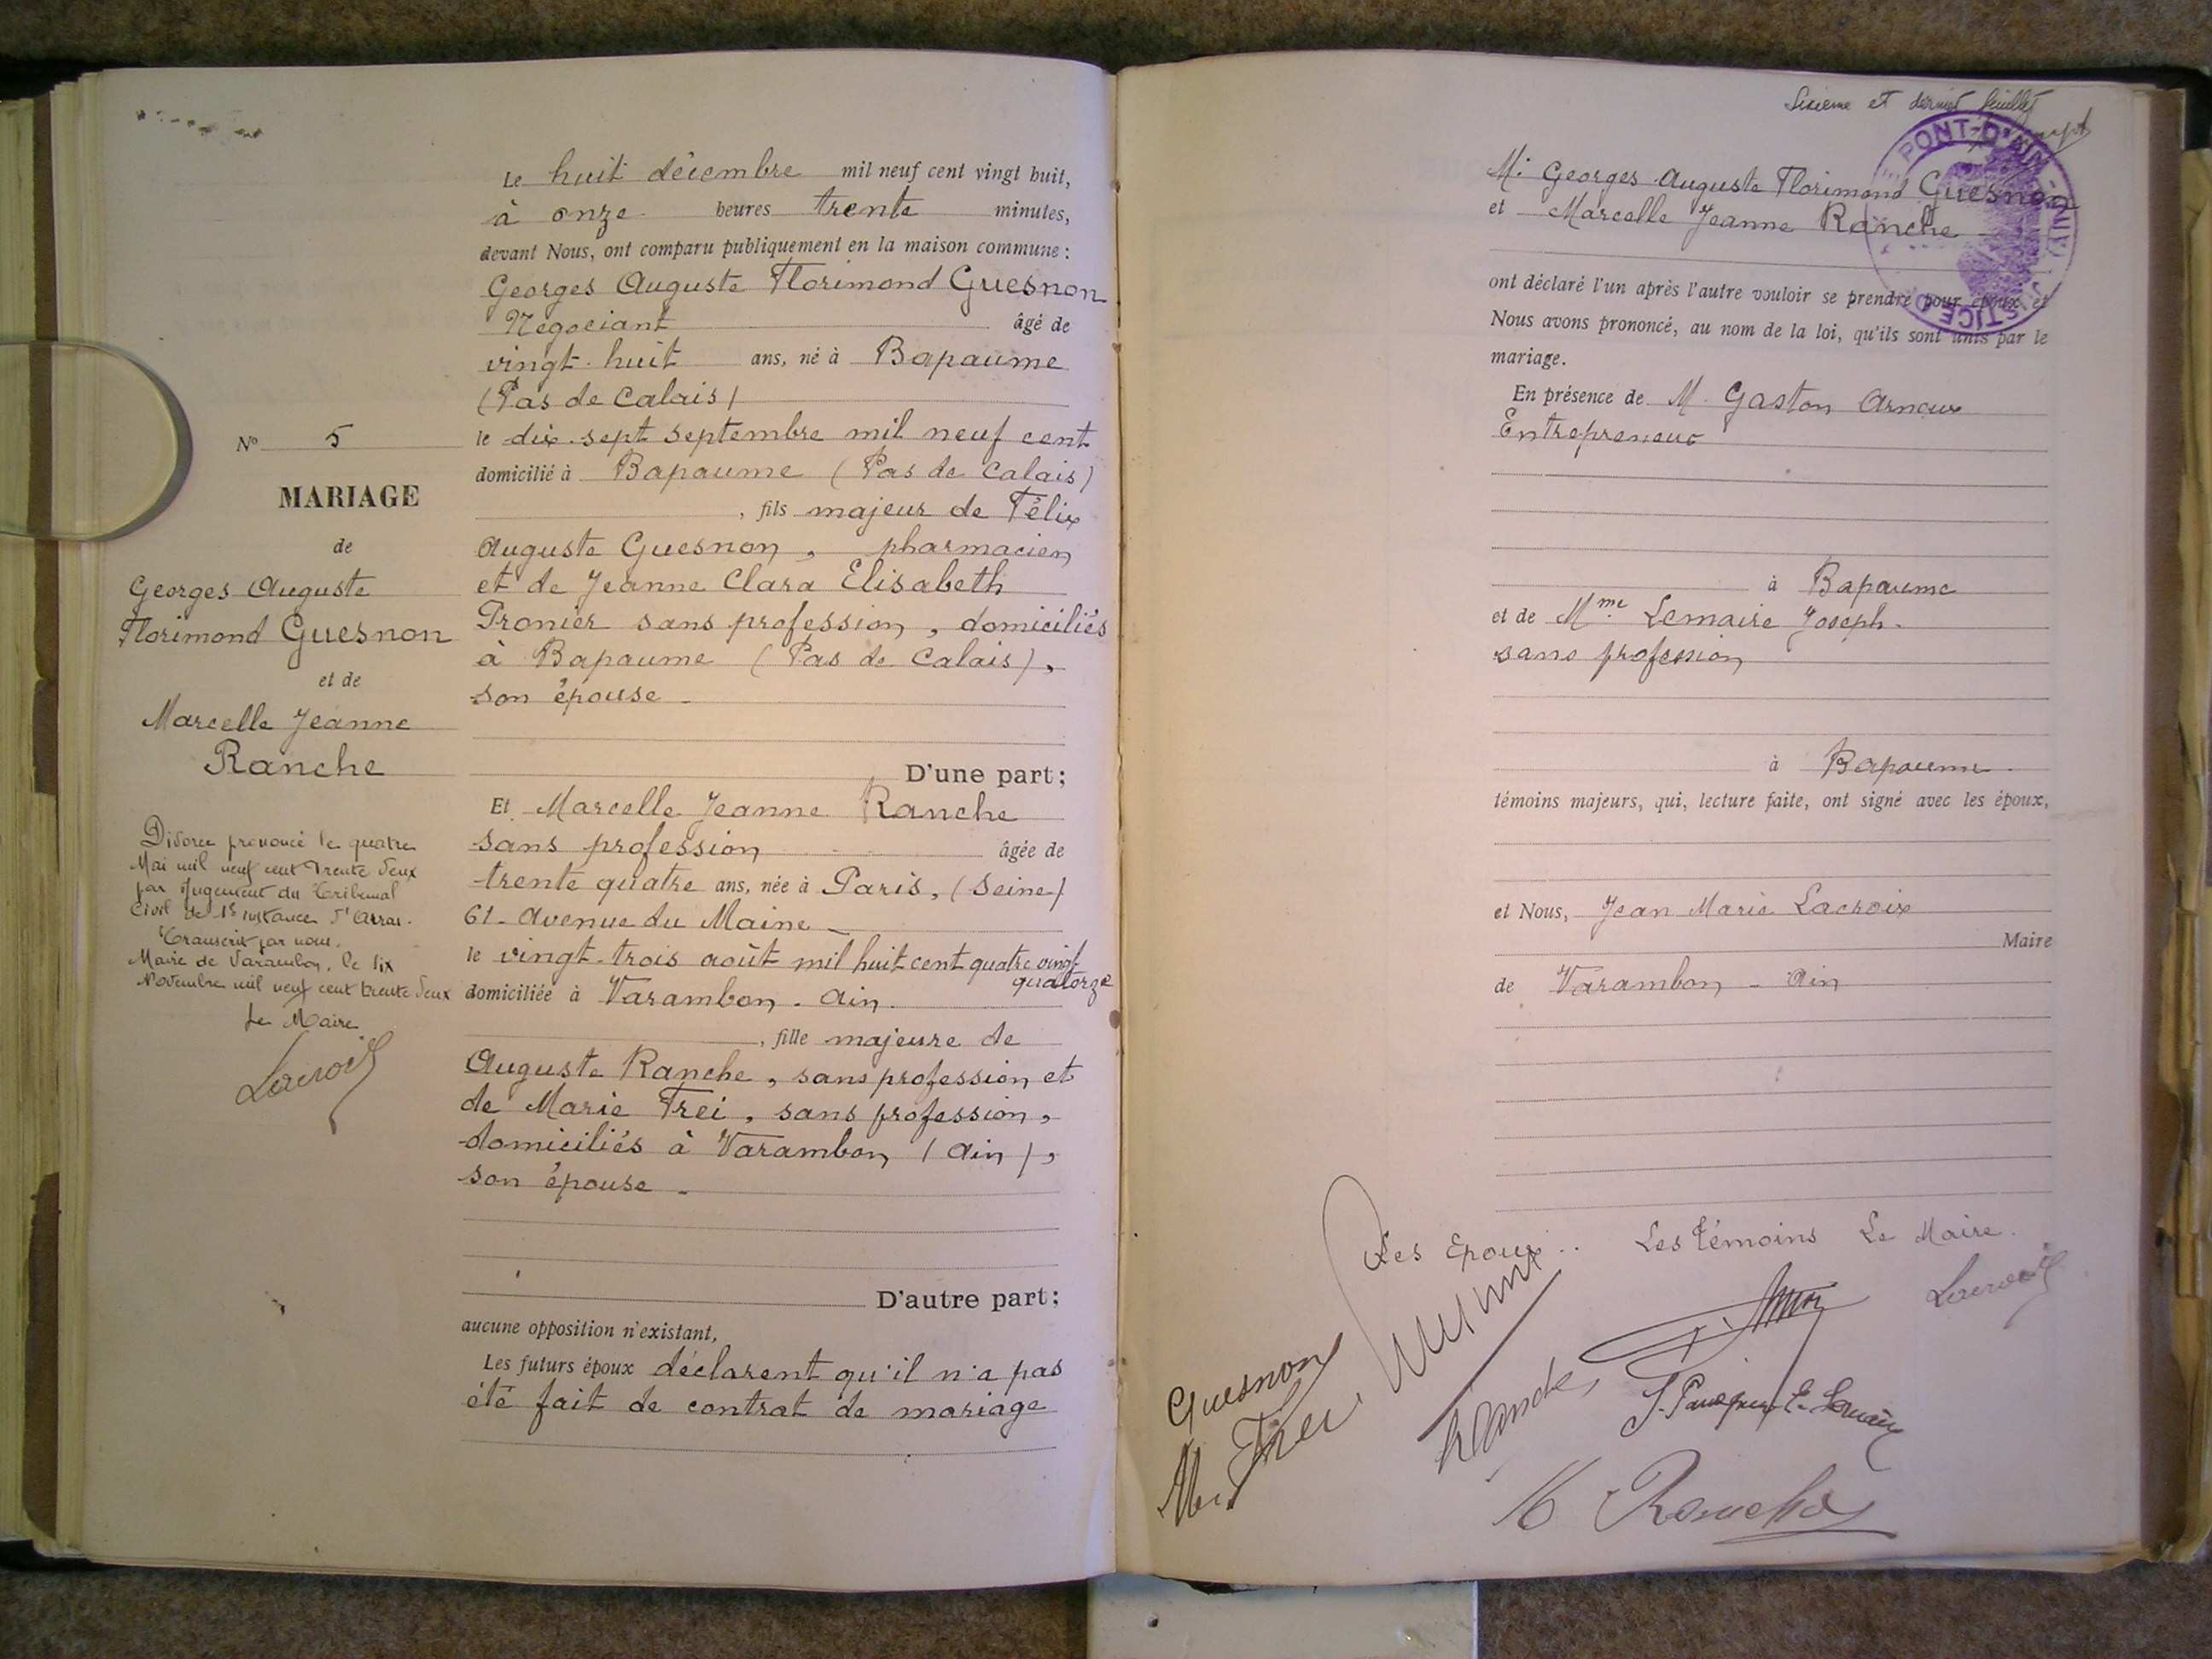 Le huit décembre mil neuf cent vingt huit,
à onze heures trente minutes,
devant Nous, ont comparu publiquement en la maison commune :
Georges Auguste Florimond Guesnon
Négociant âgé de
vingt-huit ans, né à Bapaume
(Pas de Calais)
le dix-sept septembre mil neuf cent
domicilié à Bapaume (Pas de Calais)
, fils majeur de Félix
Auguste Guesnon, pharmacien
et de Jeanne Clara Elisabeth
Pronier sans profession, domiciliés
à Bapaume (Pas de Calais),
son épouse -
D'une part ;
Et Marcelle Jeanne Ranche
sans profession âgée de
trente quatre ans, née à Paris, (Seine)
61 - Avenue du Maine -
le vingt-trois août mil huit cent quatre vingt
quatorze
domiciliée à Varambon - Ain.
, fille majeure de
Auguste Ranche, sans profession et
de Marie Frei, sans profession,
domiciliés à Varambon (Ain),
son épouse -
D'autre part ;
aucune opposition n'existant,
Les futurs époux déclarent qu'il n'a pas
été fait de contrat de mariage
N° 5
MARIAGE
de
Georges Auguste
Florimond Guesnon
et de
Marcelle Jeanne
Ranche
Divorce prononcé le quatre
Mai mil neuf cent trente deux
par Jugement du Tribunal
Civil de 1re instance d'Arras.
Transcrit par nous.
Maire de Varambon, le six
Novembre mil neuf cent trente deux
Le Maire
Lacroix
Sixieme et dernier feuillet
PONT-D'AIN (AIN)
JUSTICE D
M. Georges Auguste Florimond Guesnon
et Marcelle Jeanne Ranche
ont déclaré l'un après l'autre vouloir se prendre pour époux et
Nous avons prononcé, au nom de la loi, qu'ils sont unis par le
mariage.
En présence de M. Gaston Arnoux
Entrepreneur
à Bapaume
et de Mme Lemaire Joseph.
sans profession
à Bapaume.
témoins majeurs, qui, lecture faite, ont signé avec les époux,
et Nous, Jean Marie Lacroix
Maire
de Varambon - Ain
Les Epoux. Les témoins Le Maire.
Lacroix
Guesnon
M Frei
Ranche
E. Lemaire
M Ranche